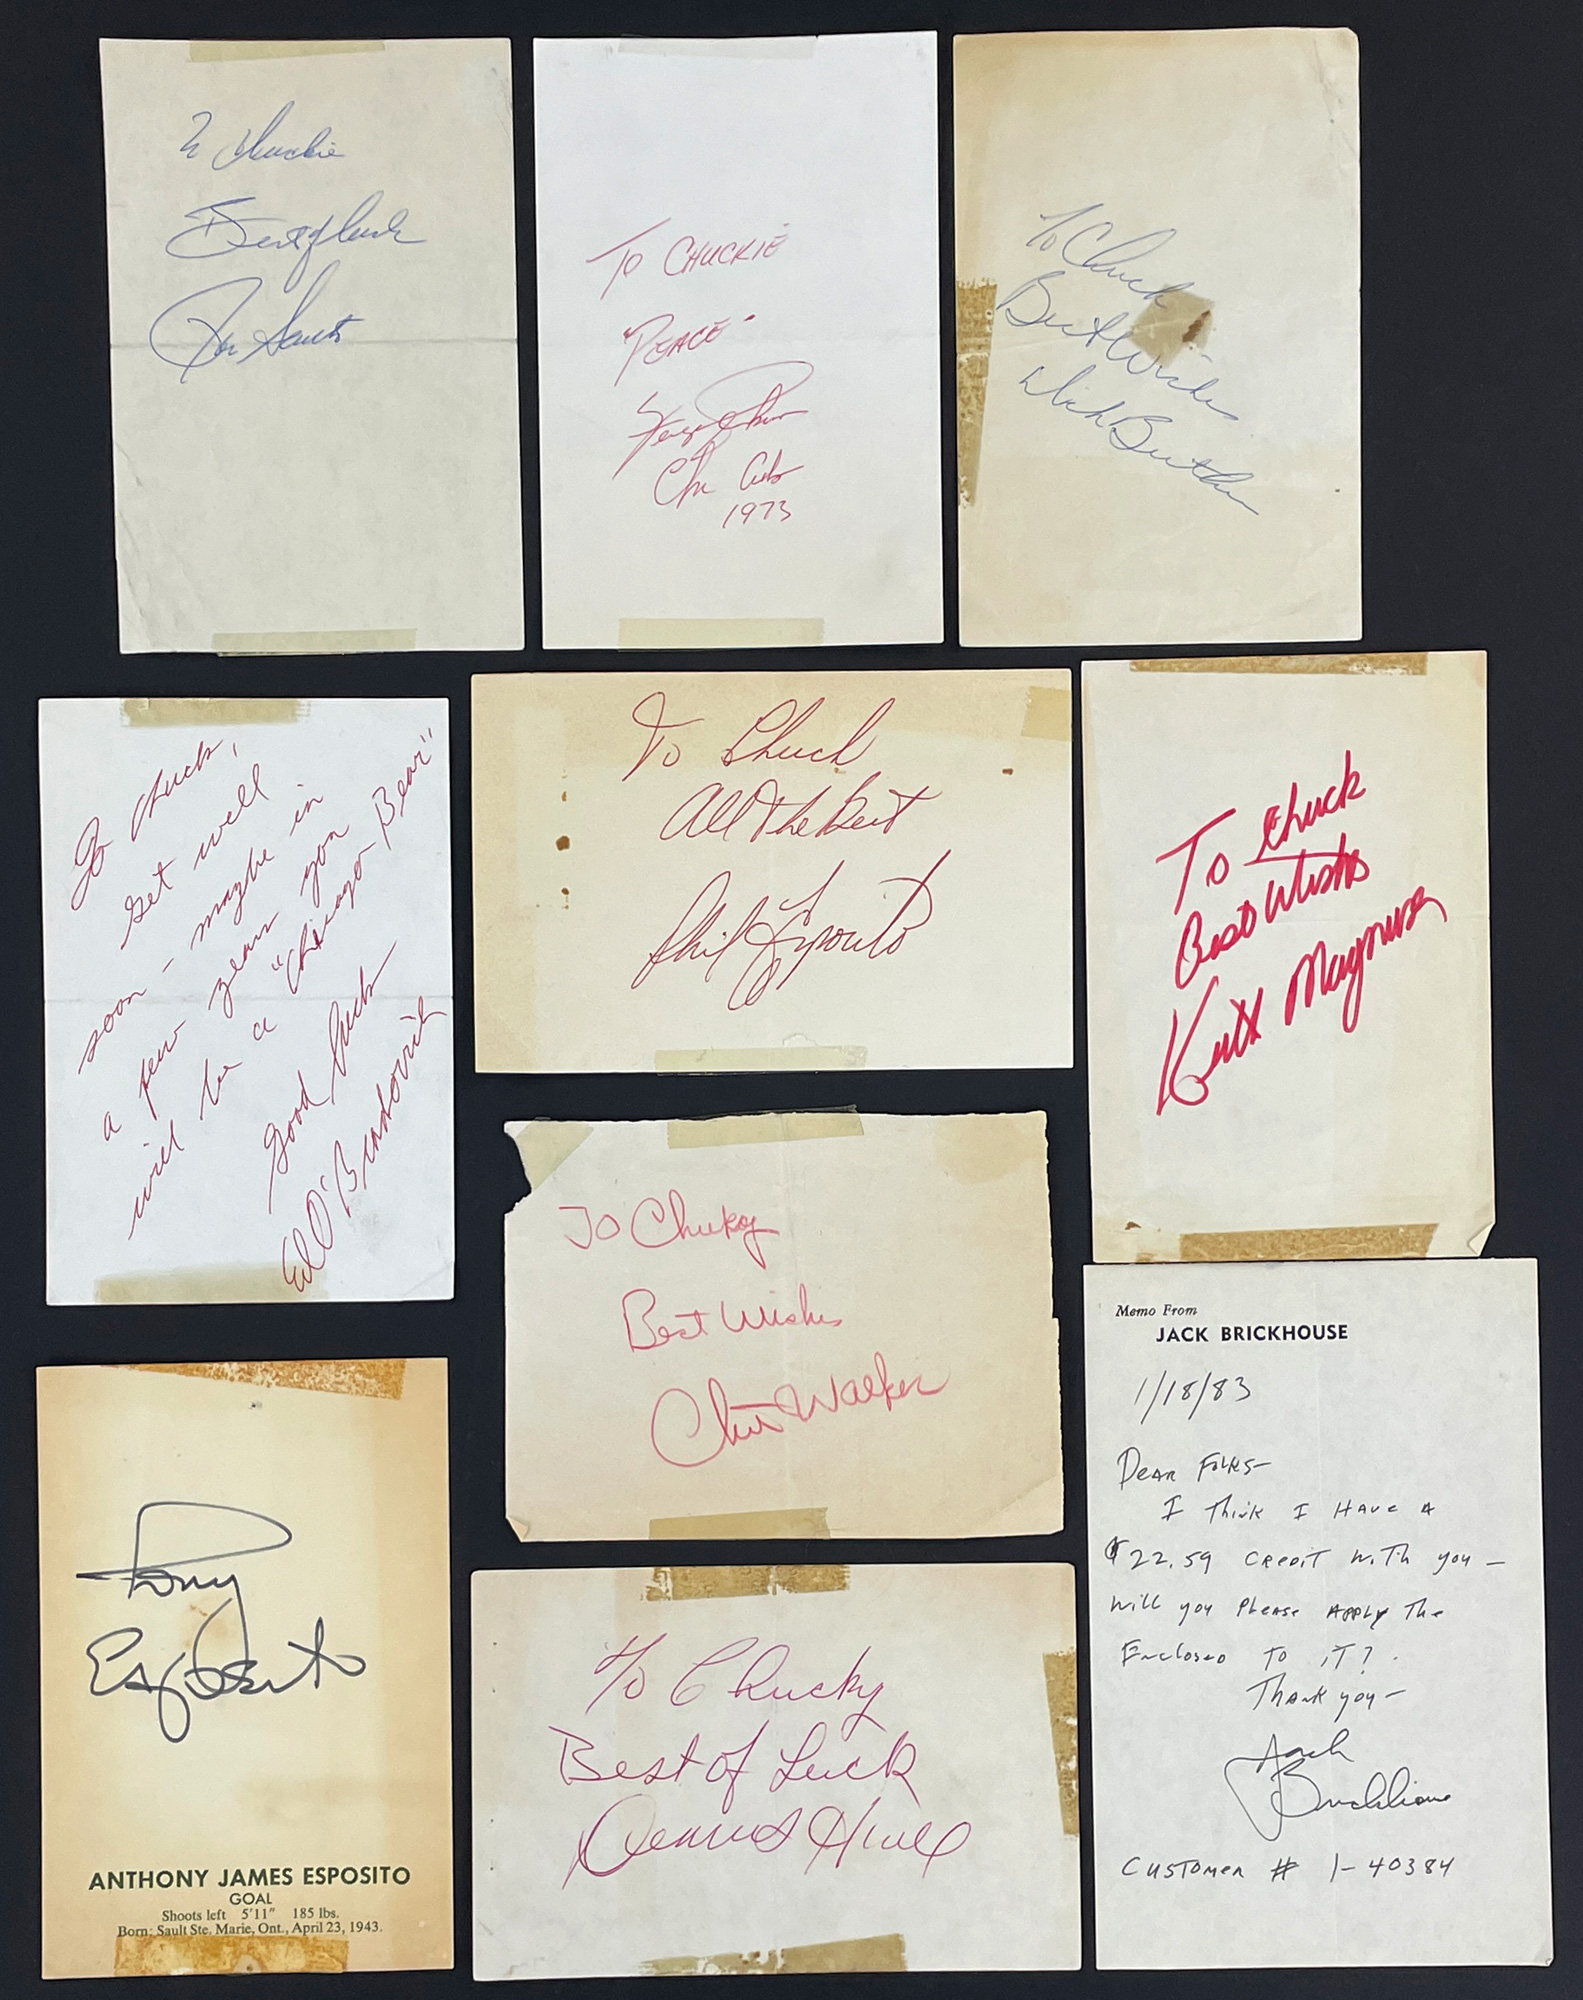 To Chuckie
Best of luck
Ron Santo
To CHUCKIE
"PEACE"
Fergie Jenkins
Chi Cubs
1973
To Chuck
Best Wishes
Dick Butkus
To Chuck,
Get well
soon - maybe in
a few years you
will be a "Chicago Bear"
Good luck
Ed O'Bradovich
To Chuck
All The Best
Phil Esposito
To Chuck
Best Wishes
Keith Magnuson
To Chucky
Best Wishes
Chet Walker
Memo From
JACK BRICKHOUSE
1/18/83
Dear Folks-
I Think I Have A
$22.59 Credit with you -
will you Please Apply The
Enclosed To iT?
Thank you -
Jack
Brickhouse
Customer # 1-40384
Tony
Esposito
ANTHONY JAMES ESPOSITO
GOAL
Shoots left 5'11" 185 lbs.
Born: Sault Ste. Marie, Ont., April 23, 1943.
To Chucky
Best of Luck
Dennis Hull